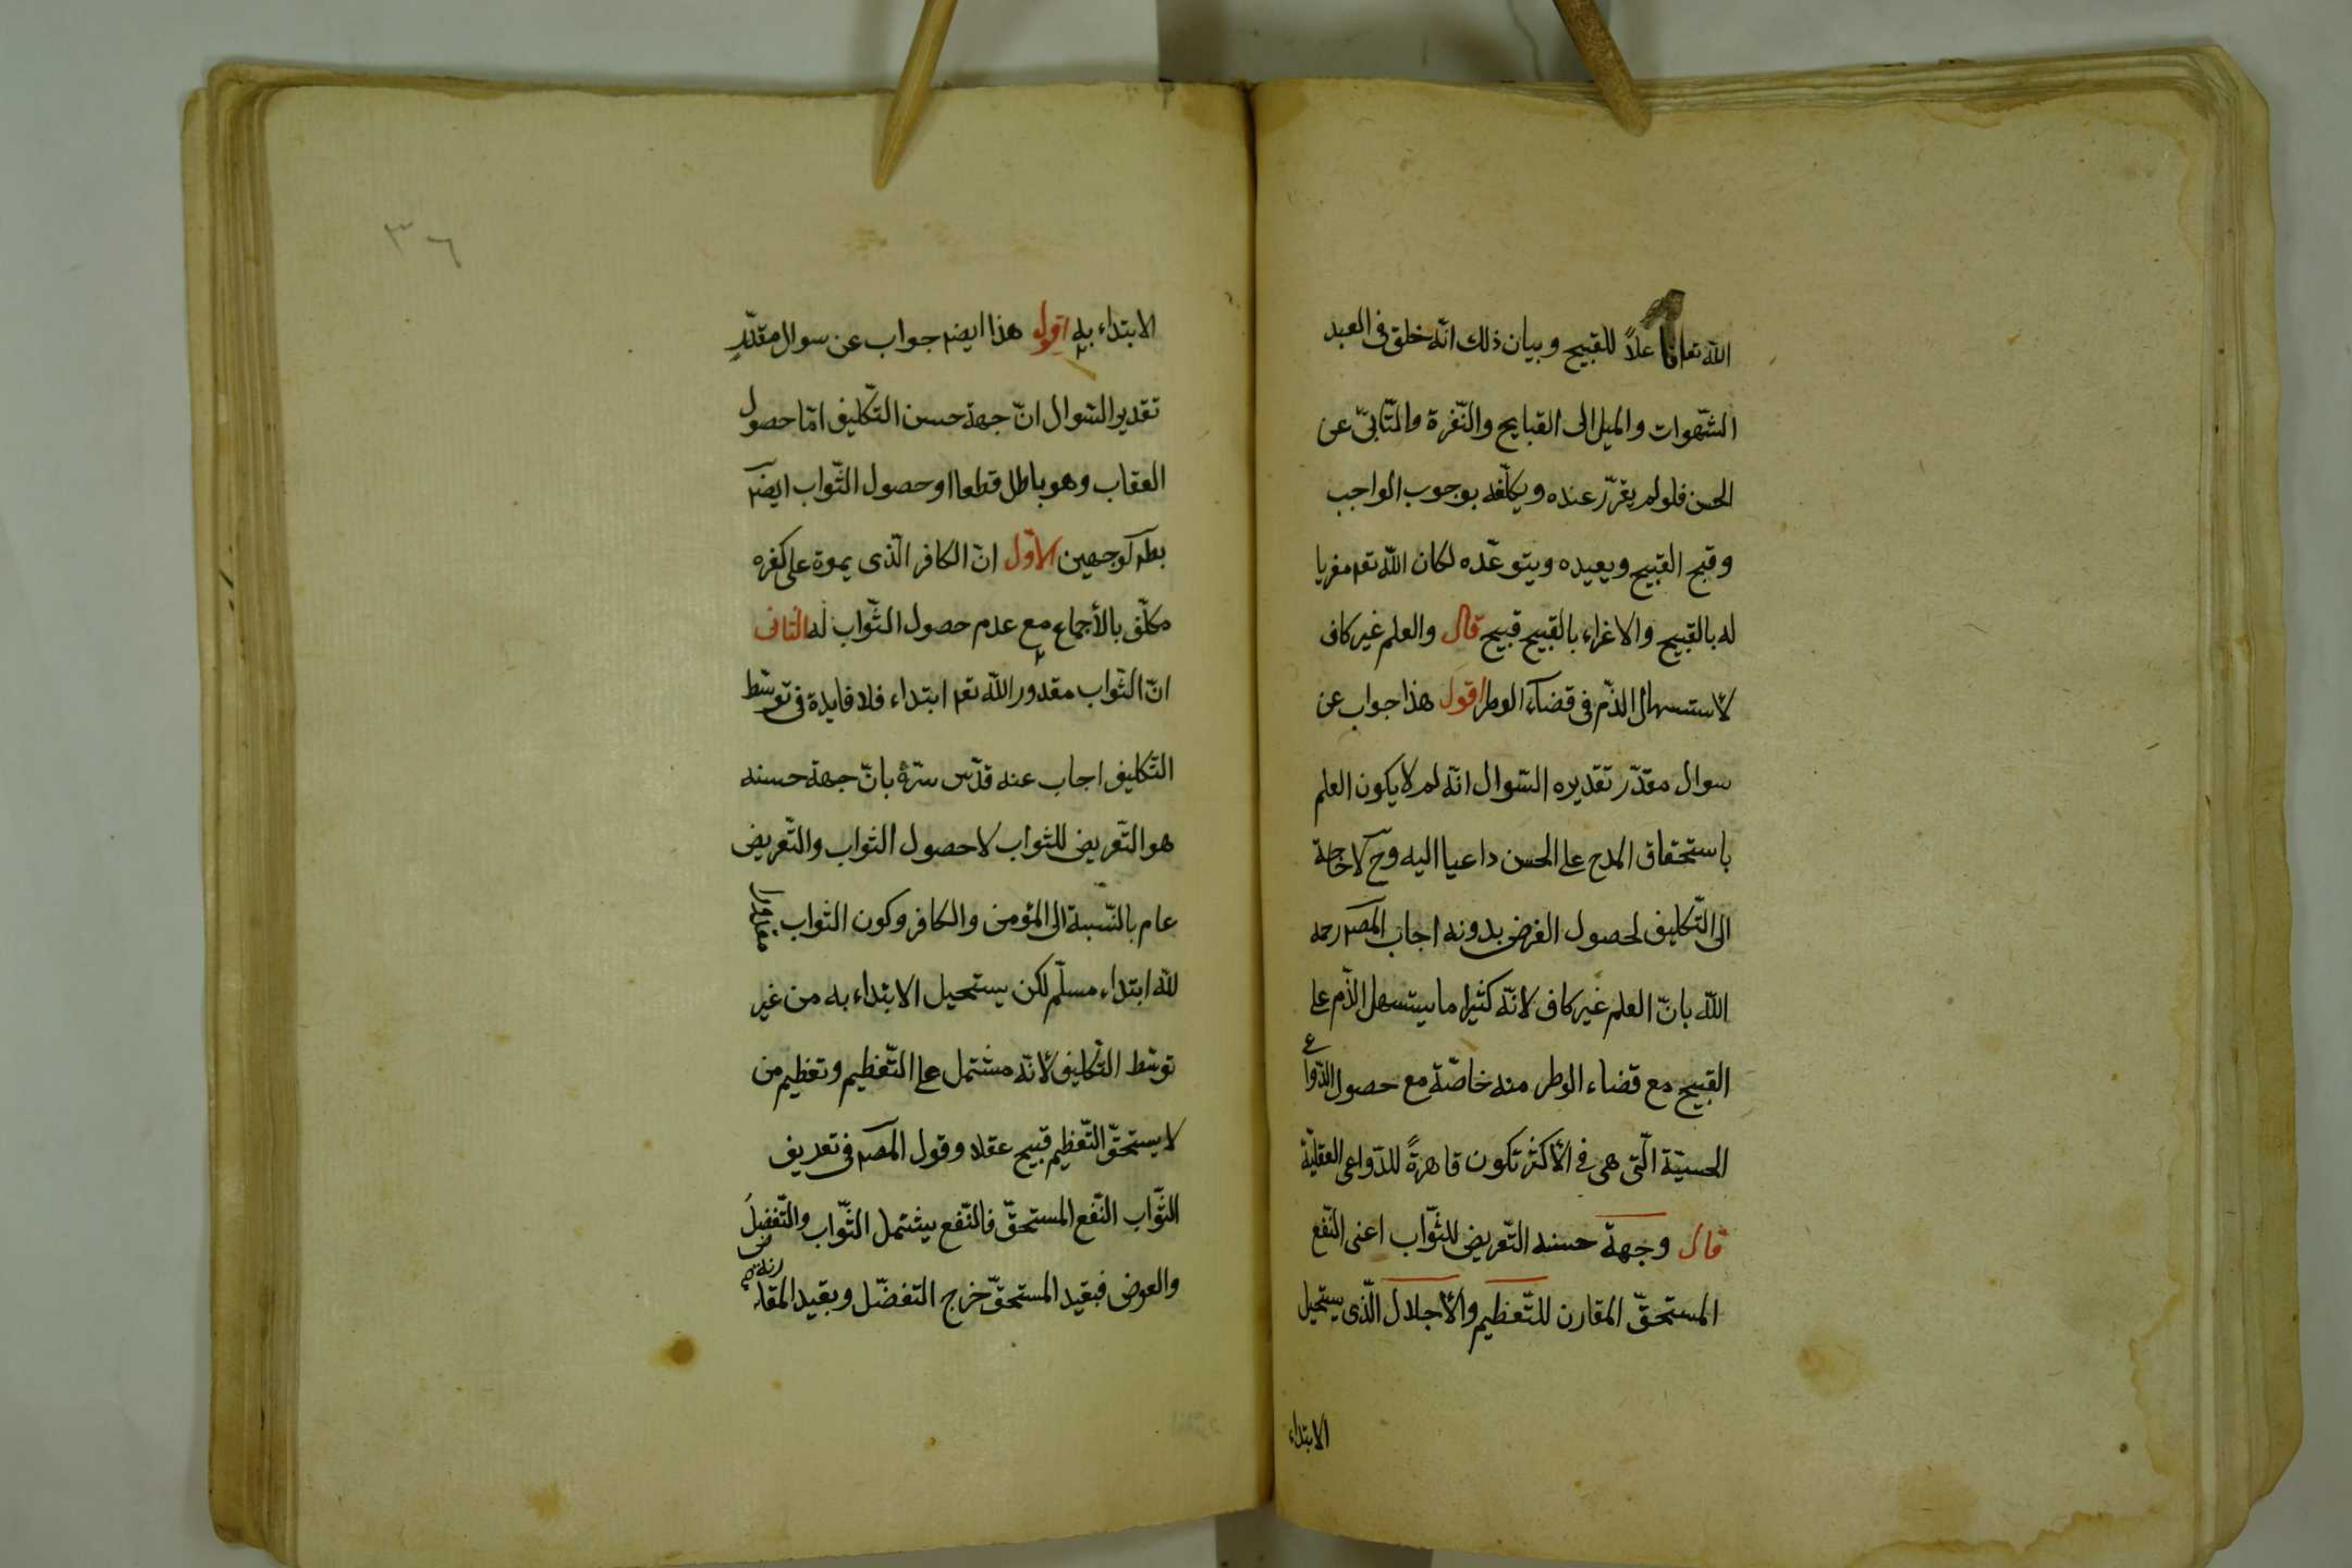 الله تعا فاعلاً للقبيح وبيان ذلك انّه خلق فى العبد
الشّهوات والميل الى القبايح والنّفرة والتّابىّ عن
الحسن فلو لم يقرّر عنده ويكلّفه بوجوب الواجب
وقبح القبيح ويعيده ويتوعّده لكان الله تعم مغريا
له بالقبيح والاغراء بالقبيح قبيح قال والعلم غير كاف
لاستسهال الذّم فى قضاء الوطر اقول هذا جواب عن
سوال مقدّر تقديره السّوال انّه لم لا يكون العلم
باستحقاق المدح على الحسن داعيا اليه وح لا حاجة
الى التّكليف لحصول الغرض بدونه اجاب المصم رحمه
الله بانّ العلم غير كاف لانّه كثيرا ما يستسهل الذّم على
القبيح مع قضاء الوطر منه خاصّة مع حصول الدّواعى
الحسيّة الّتى هى فى الأكثر تكون قاهرةً للدّواعى العقليّة
قال وجهة حسنه التّعريض للثّواب اعنى النّفع
المستحقّ المقارن للتّعظيم والأجلال الّذى يستحيل
الابتداء
٣٦
الابتداء به اقول هذا ايضم جواب عن سوال مقدّر
تقدير السّوال انّ جهة حسن التّكليف امّا حصول
العقاب وهو باطل قطعا او حصول الثّواب ايضم
بطم لوجهين الأوّل انّ الكافر الّذى يموة على كفره
مكلّف بالأجماع مع عدم حصول الثّواب له الثانى
انّ الثّواب مقدور الله تعم ابتداء فلا فايدة فى توسّط
التّكليف اجاب عنه قدّس سرّه بانّ جهة حسنه
هو التّعريض للثواب لا حصول الثواب والتّعريض
عام بالنّسبة الى المؤمن والكافر وكون الثواب مقدورا
لله ابتداء مسلّم لكن يستحيل الابتداء به من غير
توسّط التّكليف لأنّه مشتمل على التّعظيم وتعظيم من
لا يستحقّ التّعظيم قبيح عقلا وقول المصم فى تعريف
الثّواب النّفع المستحقّ فالنّفع يشتمل الثّواب والتّفضل
والعوض فبقيد المستحقّ خرج التفضّل وبقيد المقارنة